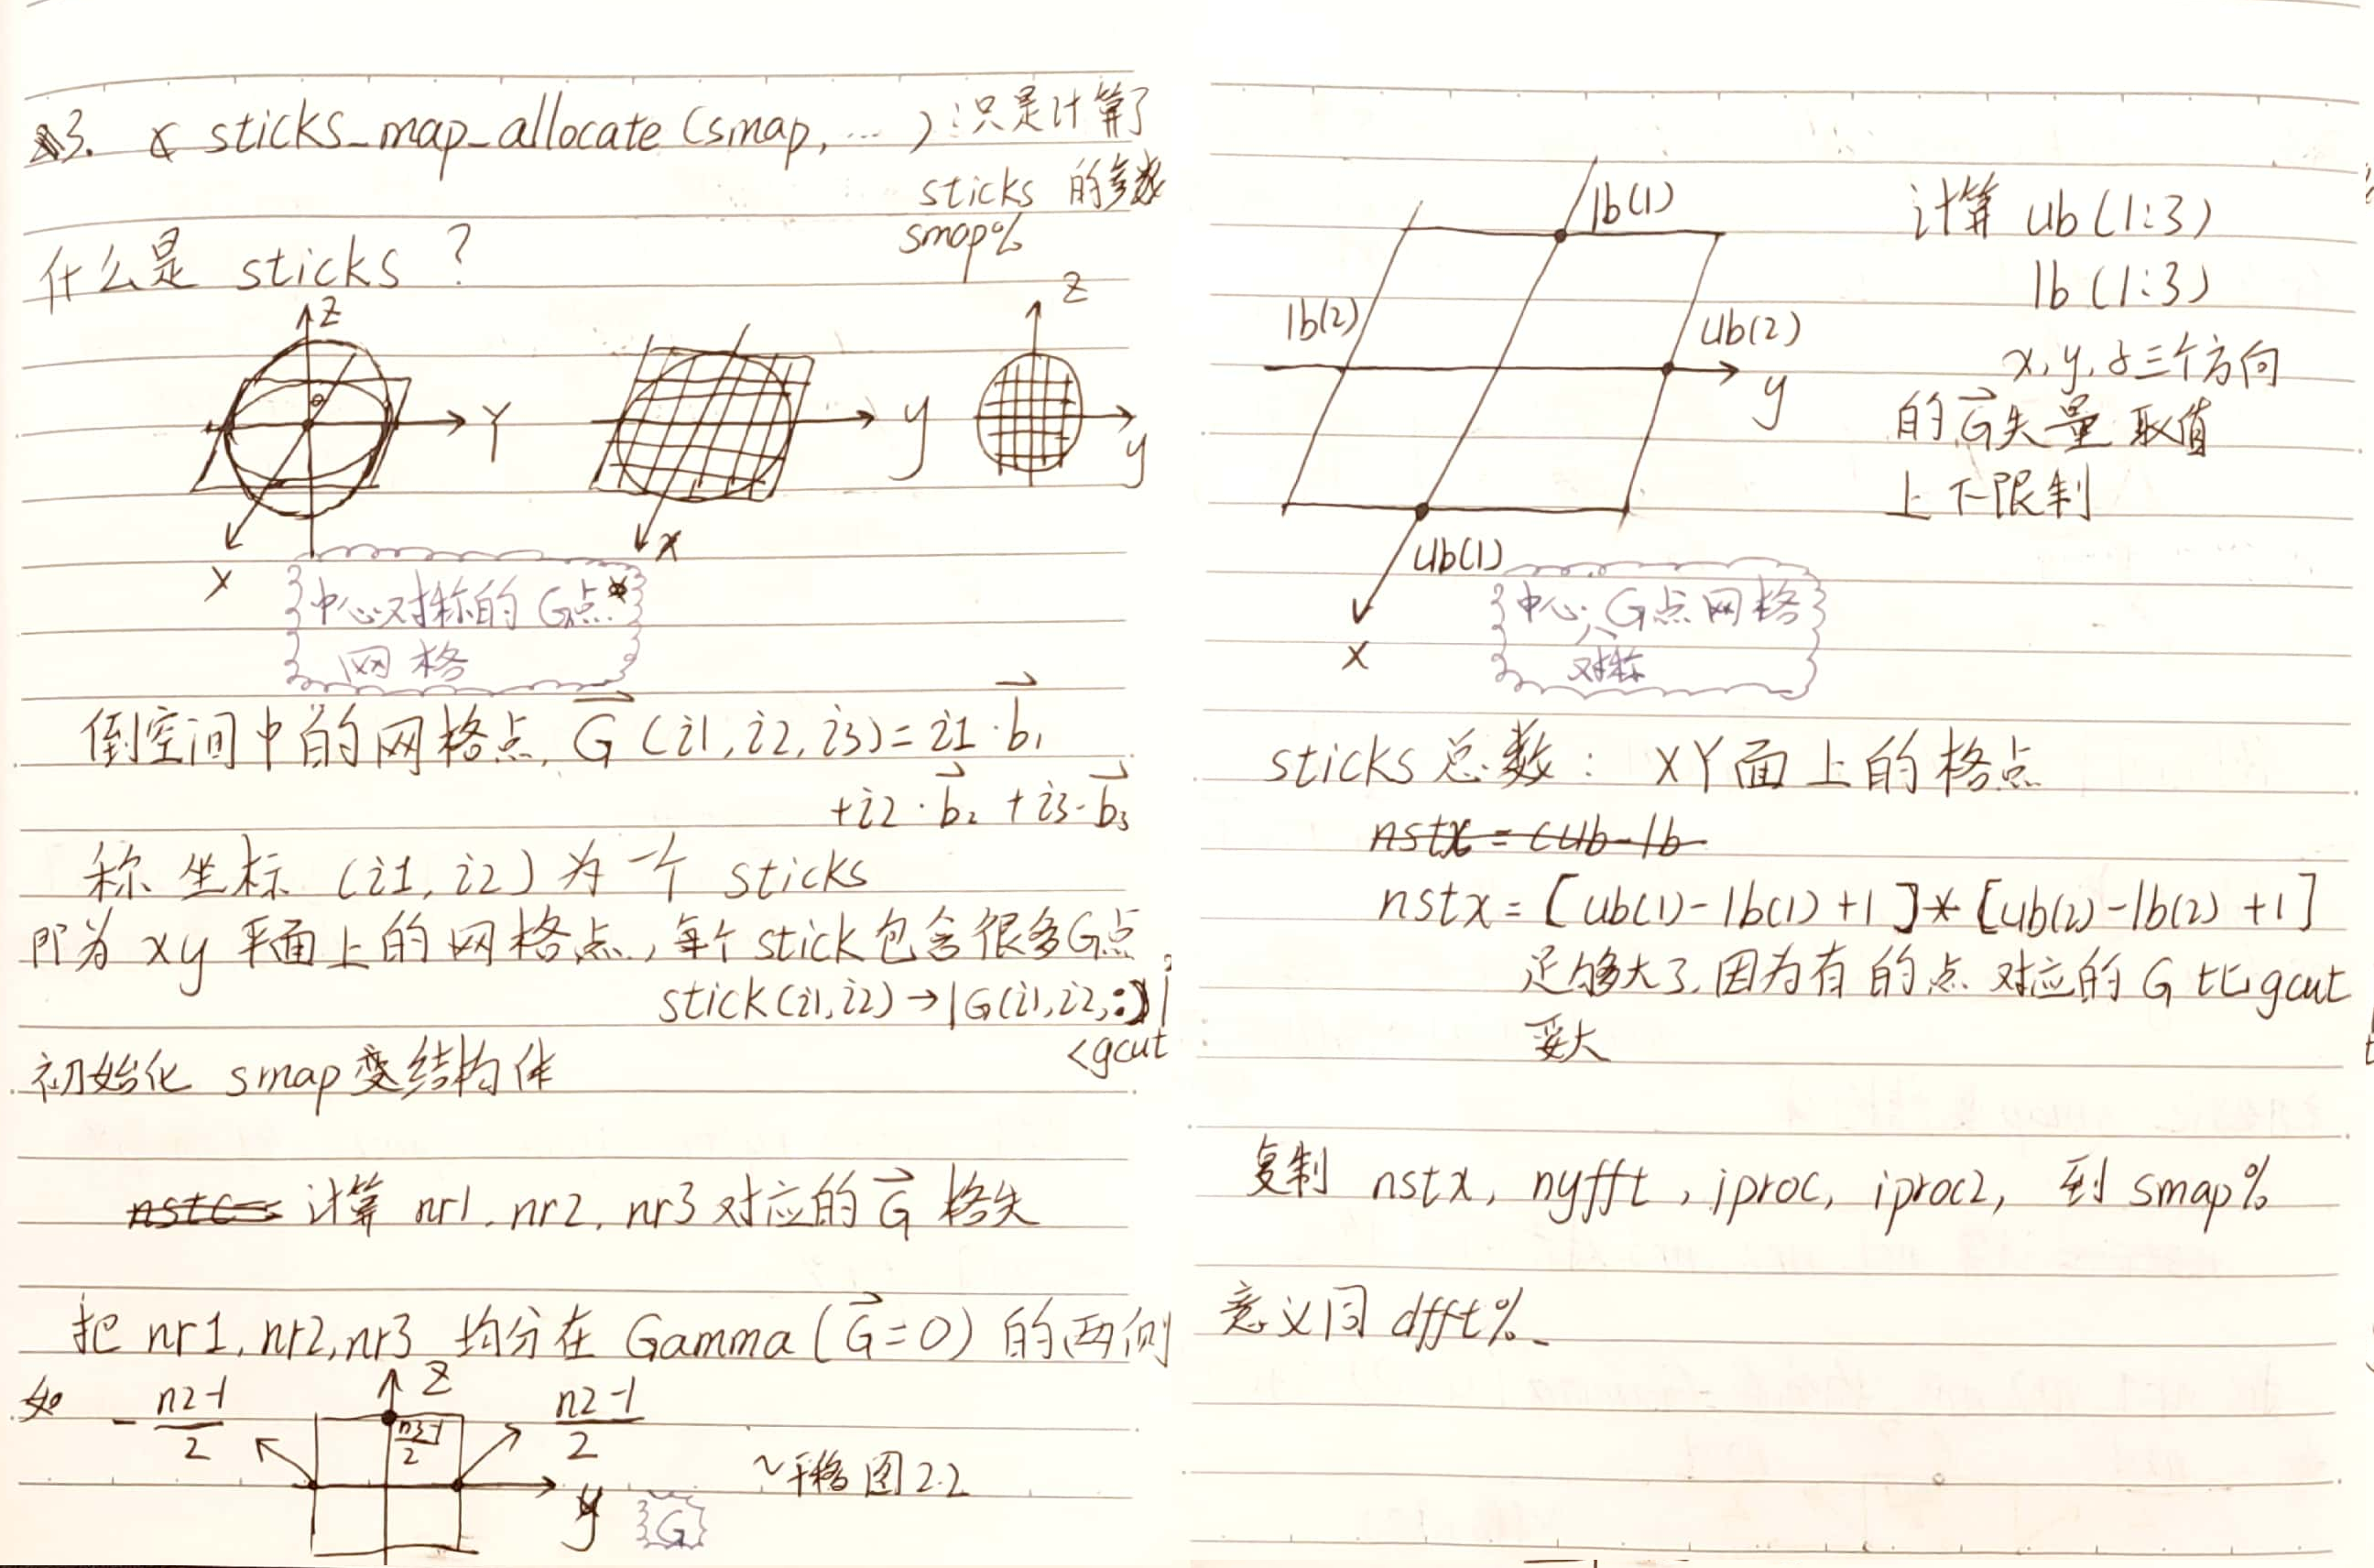 3. sticks_map_allocate (smap, ... ) : 只是计算了
sticks 的参数
smap%
什么是 sticks ?
z
Y
X
y
x
z
y
中心对称的 G点
网格
倒空间中的网格点, G (i1, i2, i3) = i1 · b1
+ i2 · b2 + i3 · b3
称坐标 (i1, i2) 为一个 sticks
即为 xy 平面上的网格点, 每个 stick 包含很多G点,
stick (i1, i2) → |G(i1, i2, :)|
<gcut
初始化 smap 变结构体
nstc= 计算 nr1, nr2, nr3 对应的 G 格矢
把 nr1, nr2, nr3 均分在 Gamma (G=0) 的两侧
如 - n2-1/2
z
n3-1/2
n2-1/2
y
G
~平移图2.2
lb(1)
lb(2)
ub(2)
y
ub(1)
x
计算 ub (1:3)
lb (1:3)
x, y, z 三个方向
的 G矢量 取值
上下限制
中心 G点网格
对称
sticks 总数: XY面上的格点
nstx = (ub-lb
nstx = [ub(1)-lb(1)+1] * [ub(2)-lb(2)+1]
足够大了, 因为有的点 对应的 G 比 gcut
要大
复制 nstx, nyfft, iproc, iproc2, 到 smap%
意义同 dfft%